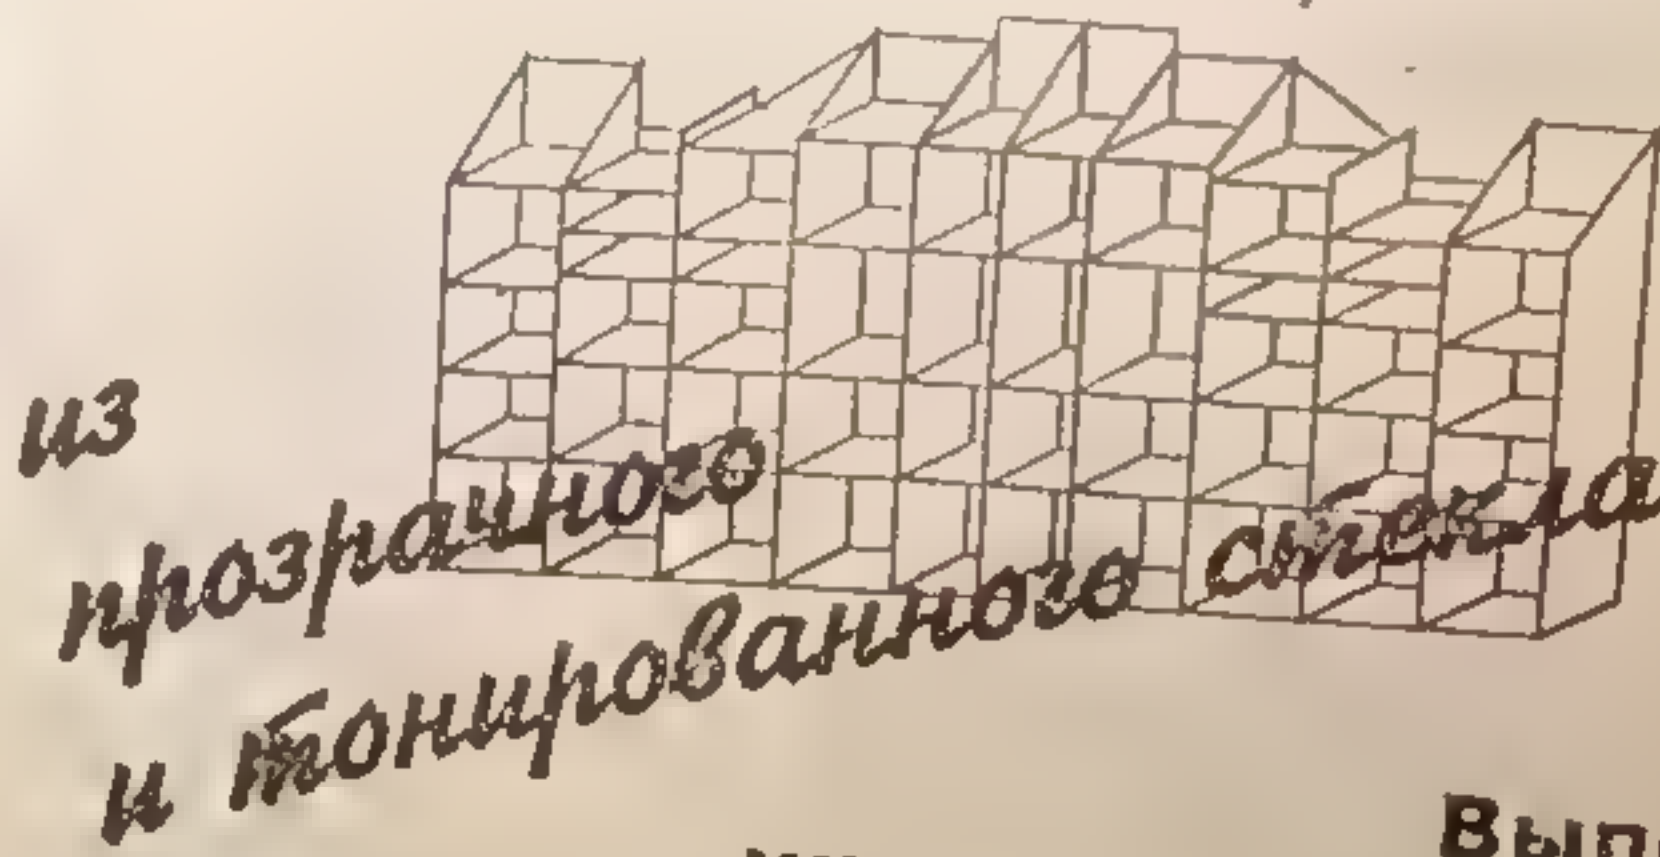 из
прозрачного
и тонированного стекла